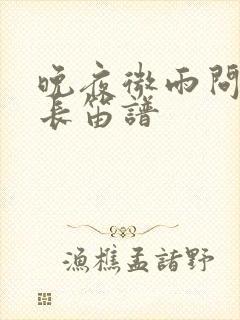 晚夜微雨問
長笛譜
漁樵孟諸野